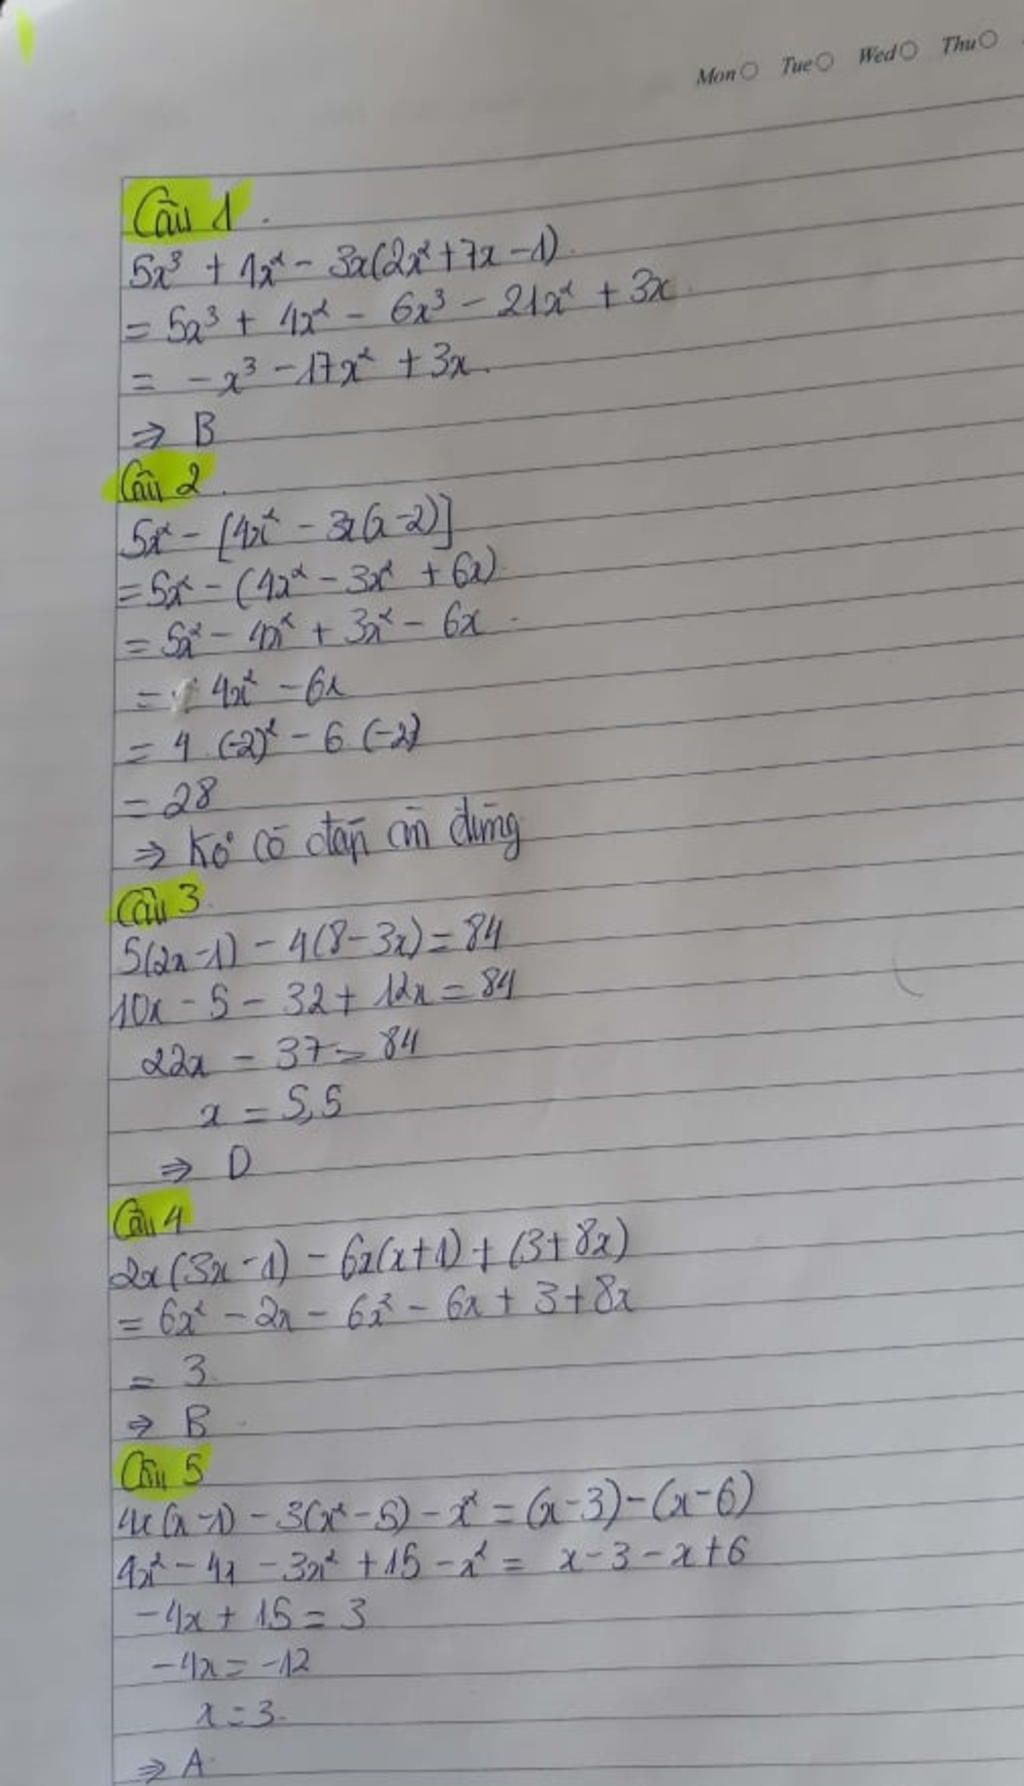 Mon Tue Wed Thu
Câu 1.
5x³ + 4x² - 3x(2x² + 7x - 1).
= 5x³ + 4x² - 6x³ - 21x² + 3x.
= -x³ - 17x² + 3x.
⇒ B
Câu 2.
5x² - [4x² - 3x(x-2)]
= 5x² - (4x² - 3x² + 6x)
= 5x² - 4x² + 3x² - 6x.
= 4x² - 6x
= 4.(-2)² - 6.(-2)
= 28
⇒ Ko có đáp án đúng
Câu 3.
5(2x-1) - 4(8-3x) = 84
10x - 5 - 32 + 12x = 84
22x - 37 = 84
x = 5,5
⇒ D
Câu 4
2x(3x-1) - 6x(x+1) + (3+8x)
= 6x² - 2x - 6x² - 6x + 3 + 8x
= 3.
⇒ B.
Câu 5
4x(x-1) - 3(x²-5) - x² = (x-3) - (x-6)
4x² - 4x - 3x² + 15 - x² = x - 3 - x + 6
-4x + 15 = 3
-4x = -12
x = 3.
⇒ A.